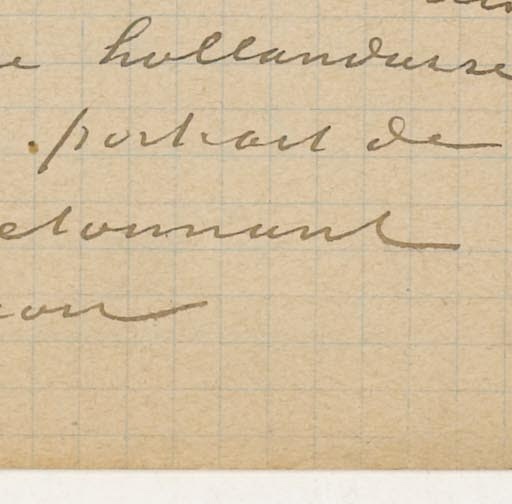 hollandaise
portrait de
etonnant